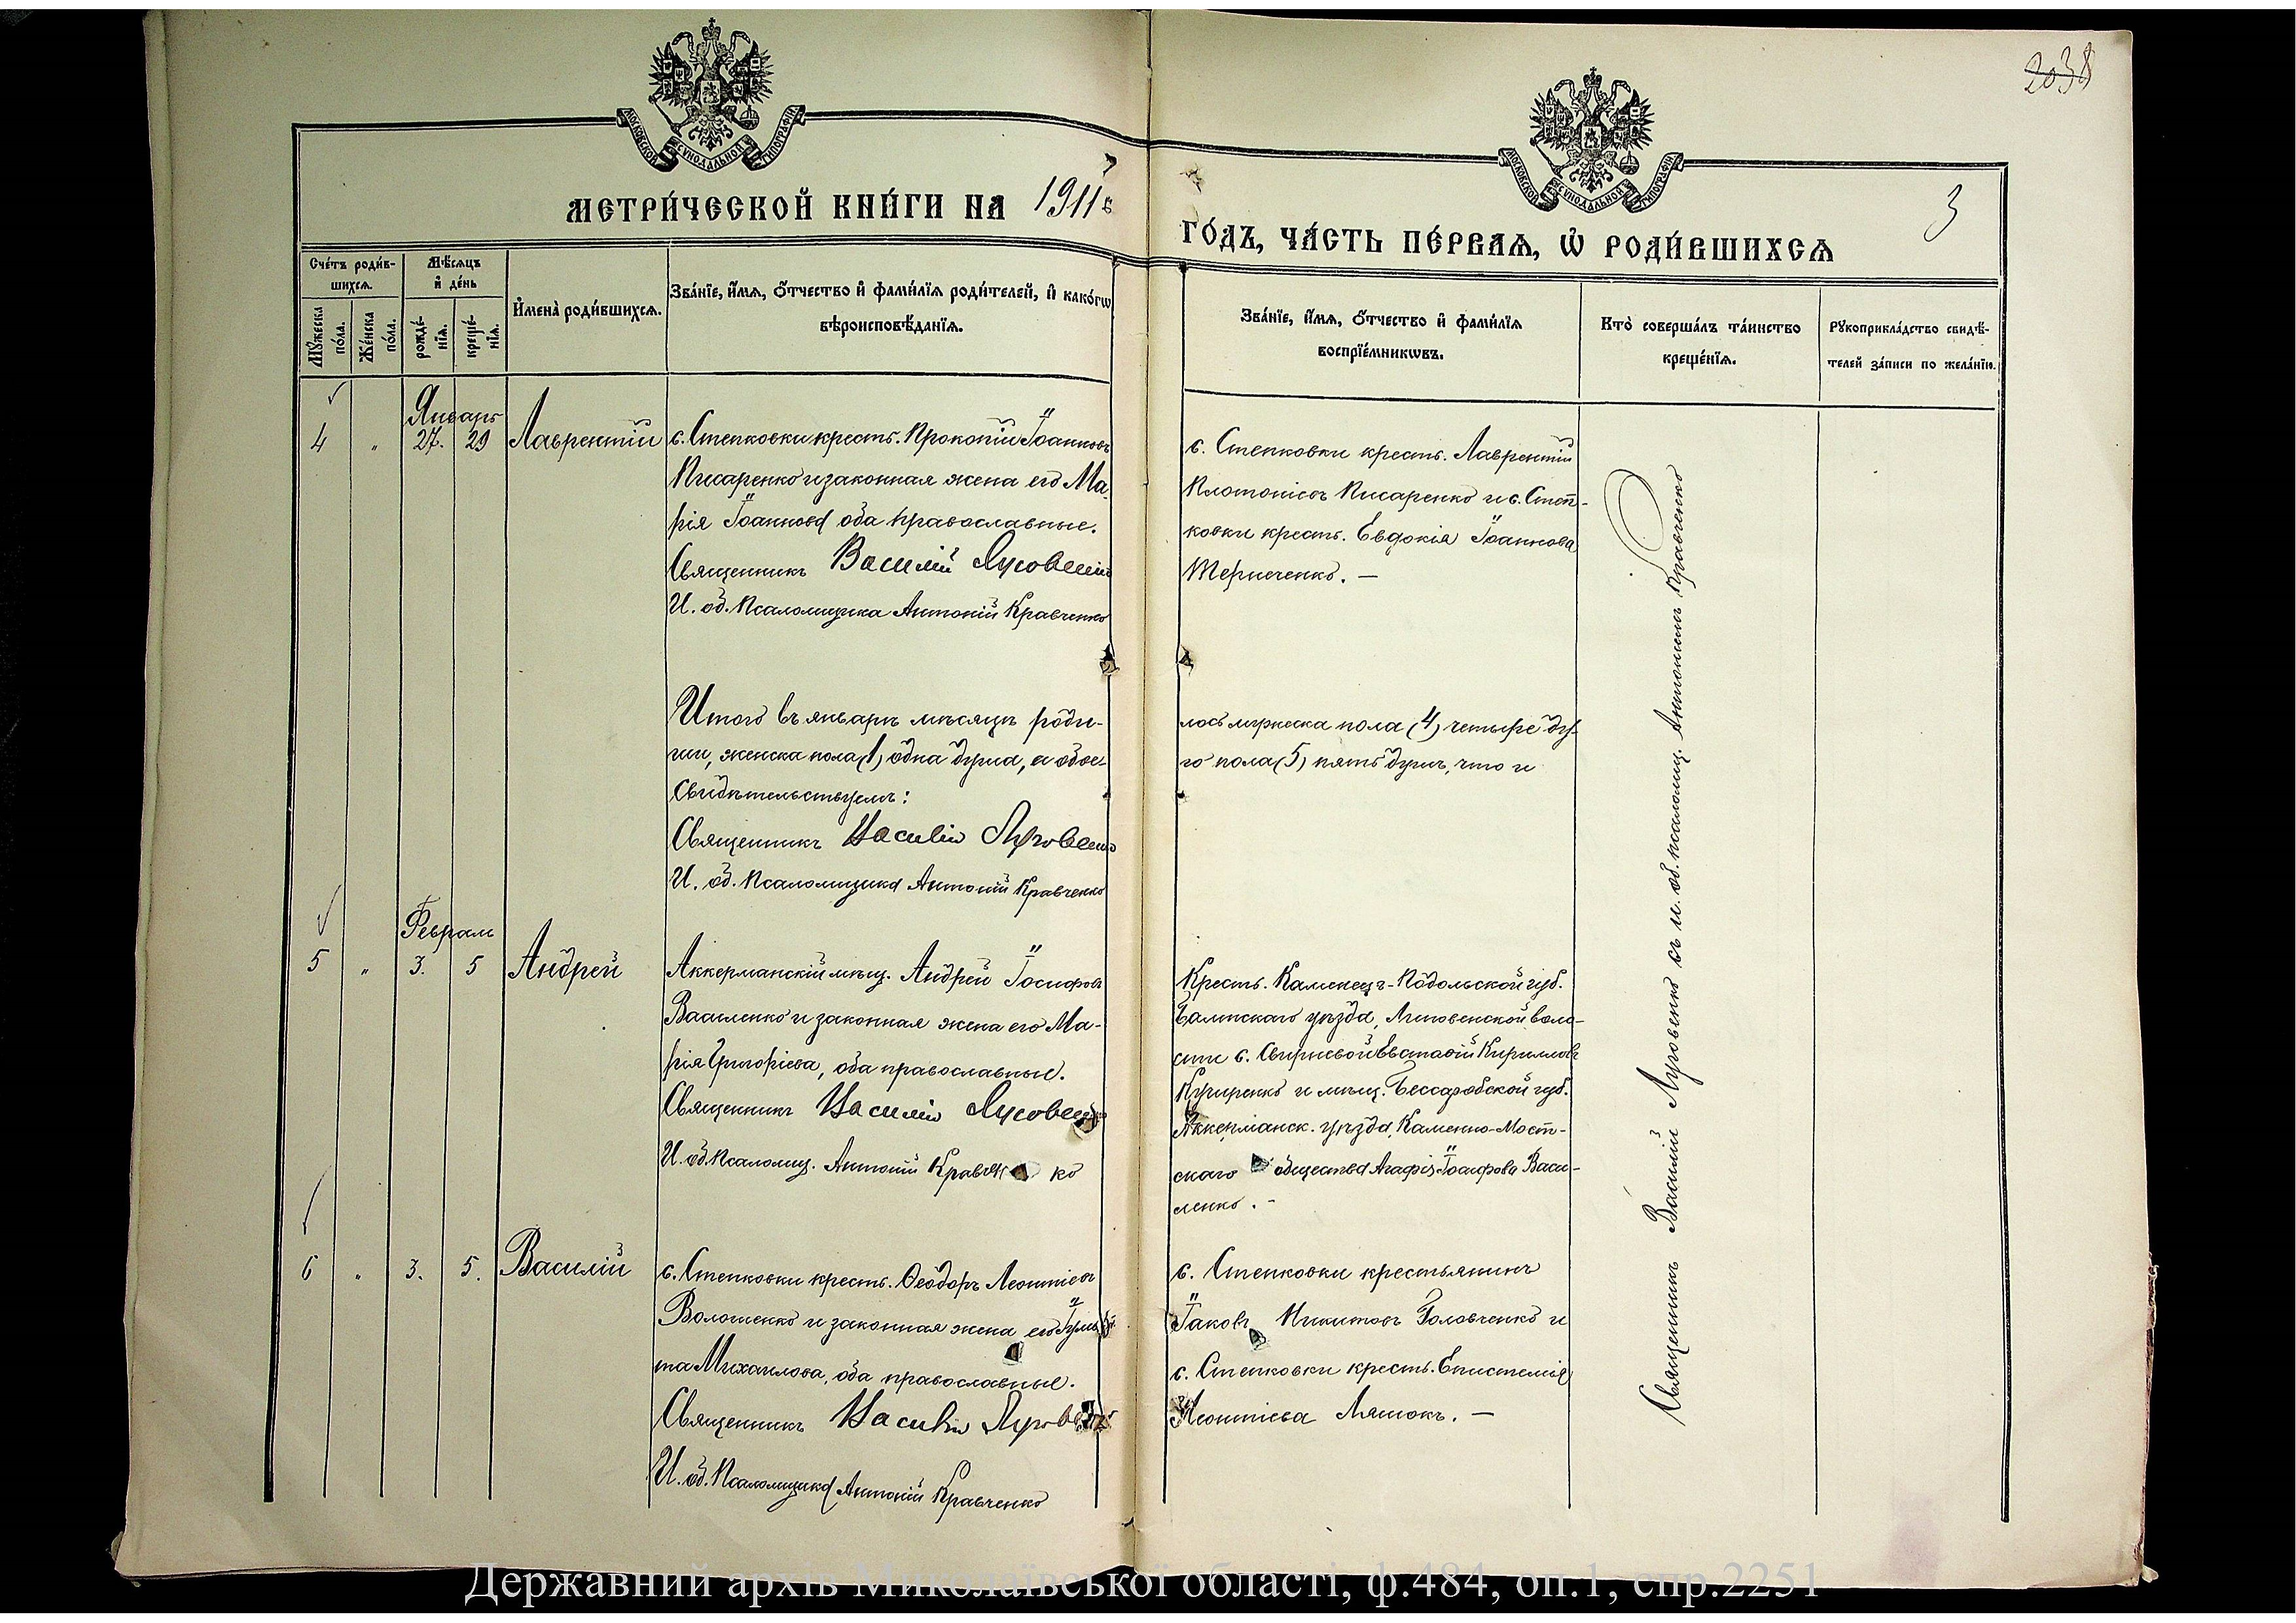 2038
МОСКОВСКОЙ СѴНОДАЛЬНОЙ ТИПОГРАФІИ
МОСКОВСКОЙ СѴНОДАЛЬНОЙ ТИПОГРАФІИ
МЕТРИ́ЧЕСКОЙ КНИ́ГИ НА 1911
ГО́ДЪ, ЧА́СТЬ ПЕ́РВАѦ, Ѡ҆ РОДИ́ВШИХСѦ
3
Сче́тъ роди́в-
шихсѧ.
Мѣ́сѧцъ
и҆ де́нь
Мꙋ́жеска
по́ла.
Же́нска
по́ла.
рожде́-
нїѧ.
креще́-
нїѧ.
И҆мена̀ роди́вшихсѧ.
Зва́нїе, и҆́мѧ, ѻ҆́тчество и҆ фами́лїѧ роди́телей, и҆ како́гѡ
вѣроисповѣ́данїѧ.
Зва́нїе, и҆́мѧ, ѻ҆́тчество и҆ фами́лїѧ
воспрїе́мникѡвъ.
Кто̀ соверша́лъ та́инство
креще́нїѧ.
Рꙋкоприкла́дство свидѣ́-
телей за́писи по жела́нїю.
Январь
4 " 27. 29 Лаврентій
с. Степковки крестъ. Прокопій Іоанновъ
Писаренко и законная жена его Ма-
рія Іоаннова оба православные.
Священникъ Василій Луговенко
И. об. Псаломщика Антоній Кравченко
с. Степковки крестъ. Лаврентій
Платоніевъ Писаренко и с. Степ-
ковки крестъ. Евдокія Іоаннова
Итого въ январѣ мѣсяцѣ роди-
лось мужеска пола (4) четыре ду-
ши, женска пола (1) одна душа, а обое-
го пола (5) пять душъ, что и
свидѣтельствуемъ:
Священникъ Василій Луговенко
И. об. Псаломщика Антоній Кравченко
Февраль
5 " 3. 5 Андрей
Аккерманскій мѣщ. Андрей Іосифовъ
Василенко и законная жена его Ма-
рія Григоріева, оба православные.
Священникъ Василій Луговенко
И. об. Псаломщ. Антоній Кравченко
Крестъ. Каменецъ-Подольской губ.
Балтскаго уѣзда, воло-
сти с. Евстафій Кирилловъ
Кушнренко и мѣщ. Бессарабской губ.
Аккерманск. уѣзда, Каменно-Мост-
скаго общества Агафія Іосифова Васи-
ленко. -
6 " 3. 5. Василій
с. Степковки крестъ. Ѳеодоръ Леонтіевъ
Волошенко и законная жена его Іули-
та Михаилова, оба православные.
Священникъ Василій Луговенко
И. об. Псаломщика Антоній Кравченко
с. Степковки крестьянинъ
Іаковъ Никитовъ Головченко и
с. Степковки крестъ. Епистимія
Леонтіева Ляшокъ. —
Священникъ Василій Луговенко съ и. об. псаломщ. Антоніемъ Кравченко
Державний архів Миколаївської області, ф.484, оп.1, спр.2251